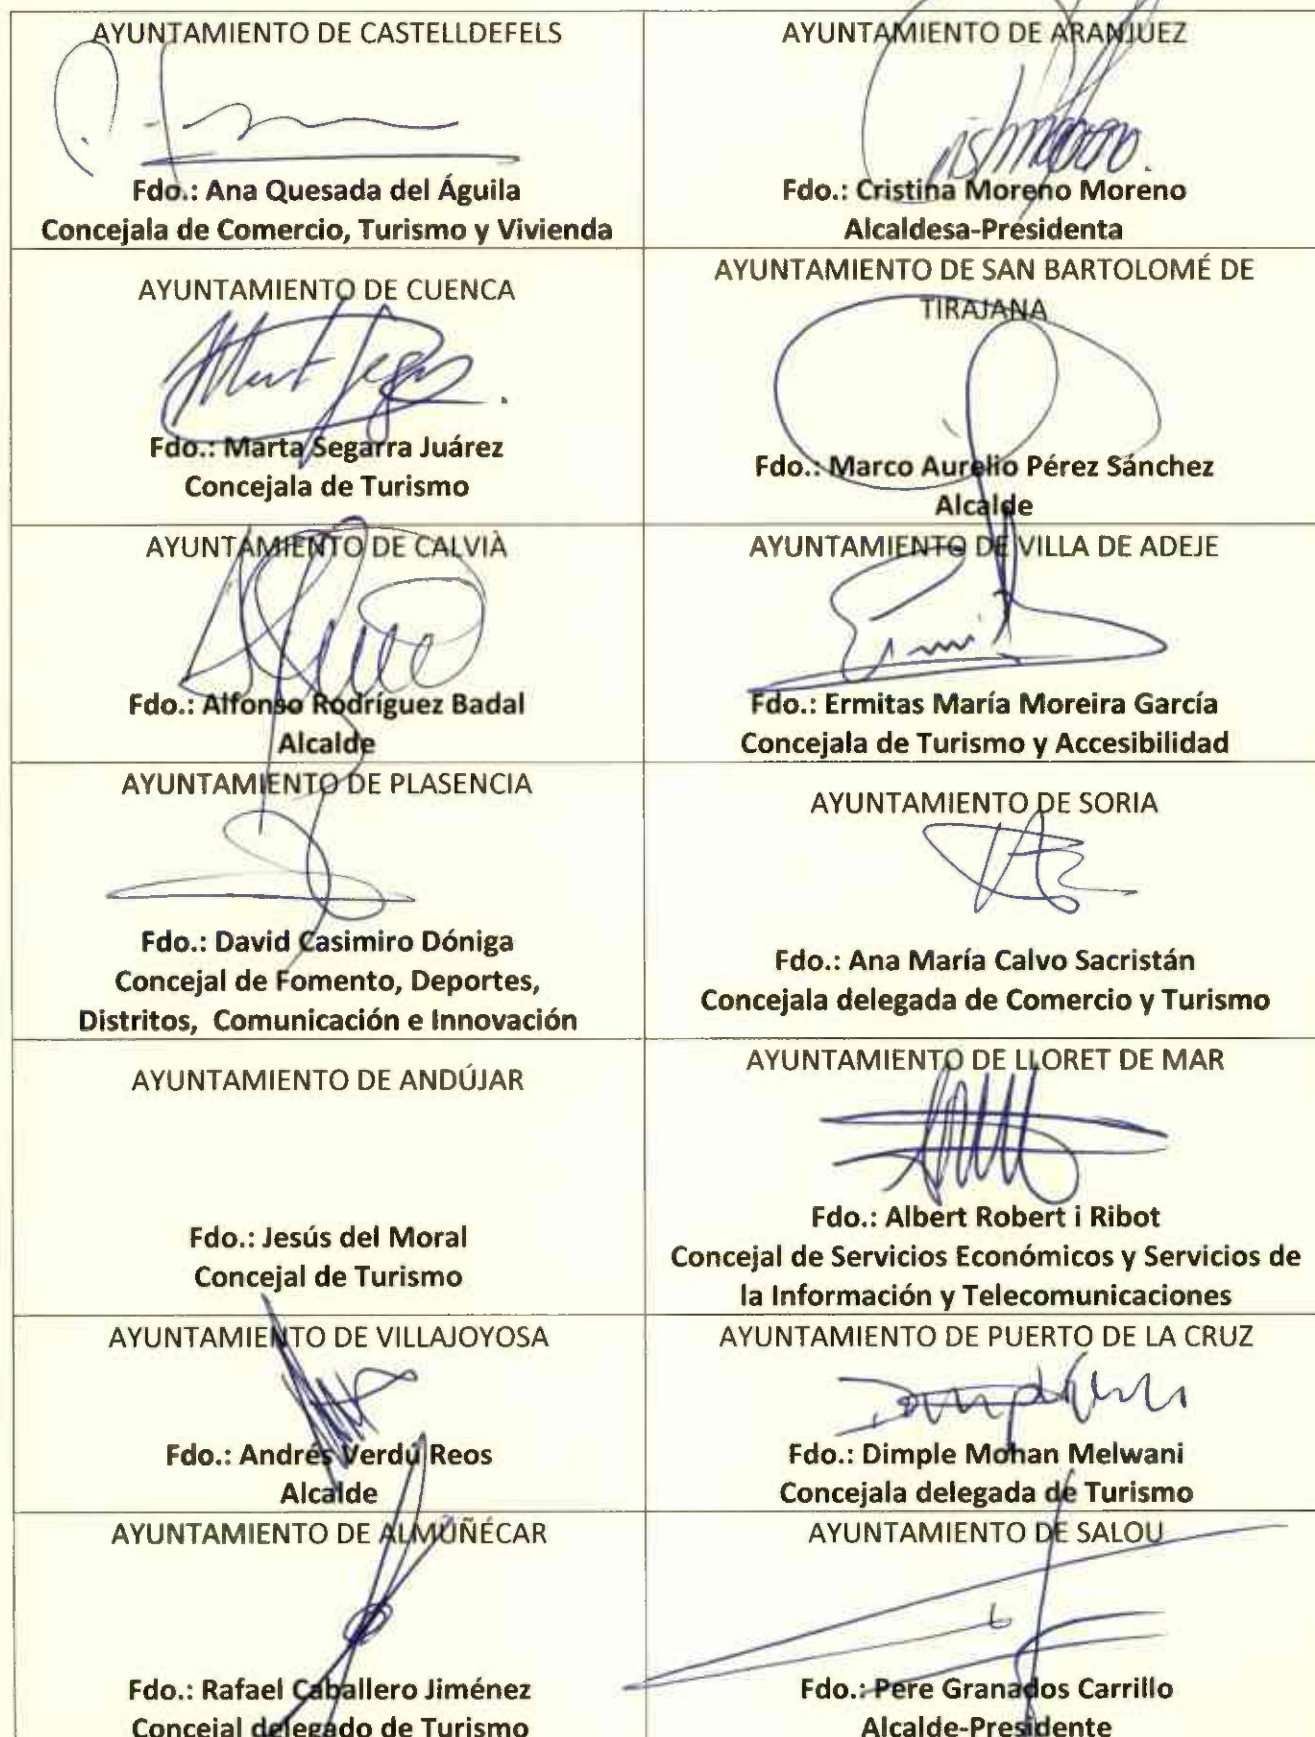 AYUNTAMIENTO DE CASTELLDEFELS
Fdo.: Ana Quesada del Águila
Concejala de Comercio, Turismo y Vivienda
AYUNTAMIENTO DE ARANJUEZ
Fdo.: Cristina Moreno Moreno
Alcaldesa-Presidenta
AYUNTAMIENTO DE CUENCA
Fdo.: Marta Segarra Juárez
Concejala de Turismo
AYUNTAMIENTO DE SAN BARTOLOMÉ DE
TIRAJANA
Fdo.: Marco Aurelio Pérez Sánchez
Alcalde
AYUNTAMIENTO DE CALVIÀ
Fdo.: Alfonso Rodríguez Badal
Alcalde
AYUNTAMIENTO DE VILLA DE ADEJE
Fdo.: Ermitas María Moreira García
Concejala de Turismo y Accesibilidad
AYUNTAMIENTO DE PLASENCIA
Fdo.: David Casimiro Dóniga
Concejal de Fomento, Deportes,
Distritos, Comunicación e Innovación
AYUNTAMIENTO DE SORIA
Fdo.: Ana María Calvo Sacristán
Concejala delegada de Comercio y Turismo
AYUNTAMIENTO DE ANDÚJAR
Fdo.: Jesús del Moral
Concejal de Turismo
AYUNTAMIENTO DE LLORET DE MAR
Fdo.: Albert Robert i Ribot
Concejal de Servicios Económicos y Servicios de
la Información y Telecomunicaciones
AYUNTAMIENTO DE VILLAJOYOSA
Fdo.: Andrés Verdú Reos
Alcalde
AYUNTAMIENTO DE PUERTO DE LA CRUZ
Fdo.: Dimple Mohan Melwani
Concejala delegada de Turismo
AYUNTAMIENTO DE ALMUÑÉCAR
Fdo.: Rafael Caballero Jiménez
Concejal delegado de Turismo
AYUNTAMIENTO DE SALOU
Fdo.: Pere Granados Carrillo
Alcalde-Presidente